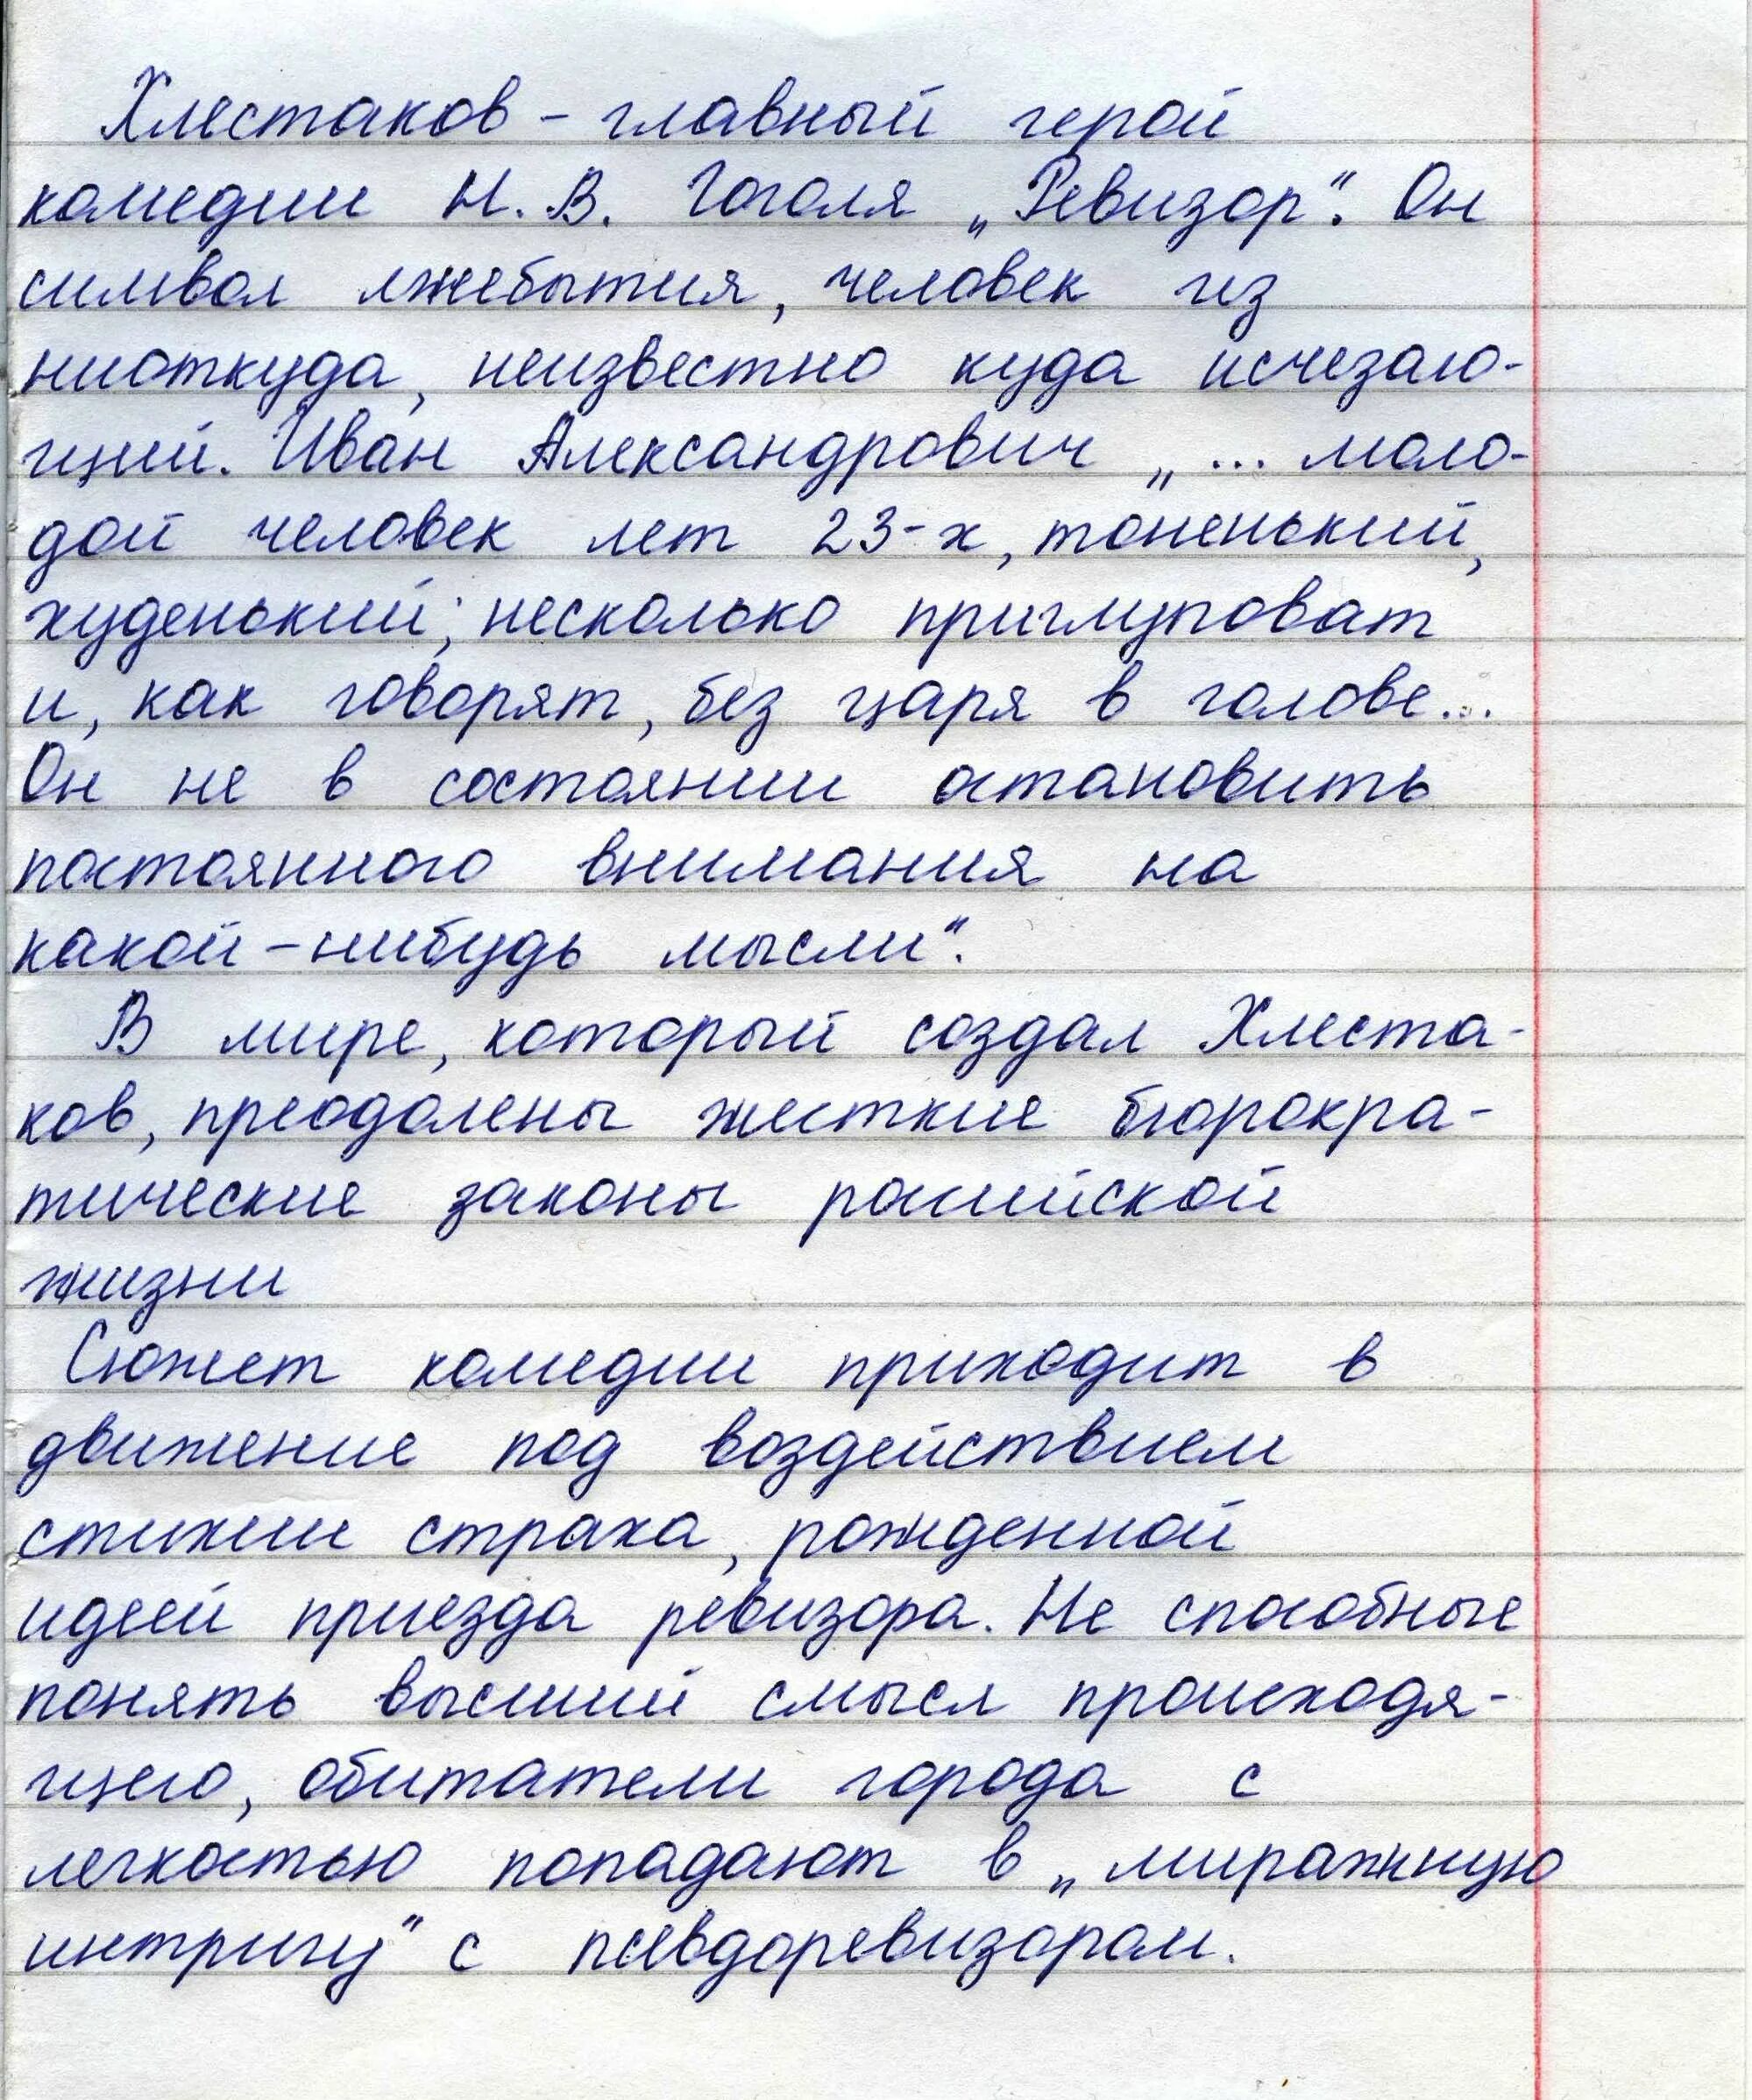 Хлестаков – главный герой
комедии Н. В. Гоголя „Ревизор“. Он
символ лжебытия, человек из
ниоткуда, неизвестно куда исчезаю-
щий. Иван Александрович „... моло-
дой человек лет 23-х, тоненький,
худенький; несколько приглуповат
и, как говорят, без царя в голове...
Он не в состоянии остановить
постоянного внимания на
какой-нибудь мысли“.
В мире, который создал Хлеста-
ков, преодолены жесткие бюрокра-
тические законы российской
жизни
Сюжет комедии приходит в
движение под воздействием
стихии страха, рожденной
идеей приезда ревизора. Не способные
понять высший смысл происходя-
щего, обитатели города с
легкостью попадают в „миражную
интригу“ с псевдоревизором.